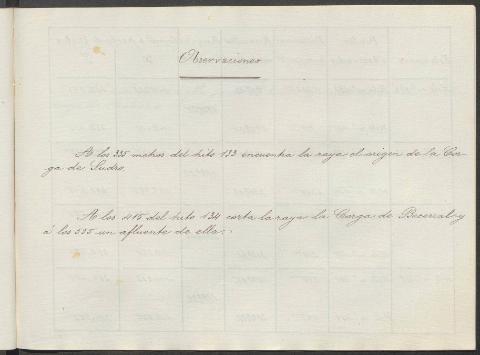 Observaciones
A los 335 metros del hito 133 encuentra la raya el origen de la Cor-
ga de Sudro.
A los 415 del hito 134 corta la raya la Corga de Becerral y
á los 535 un afluente de ella.